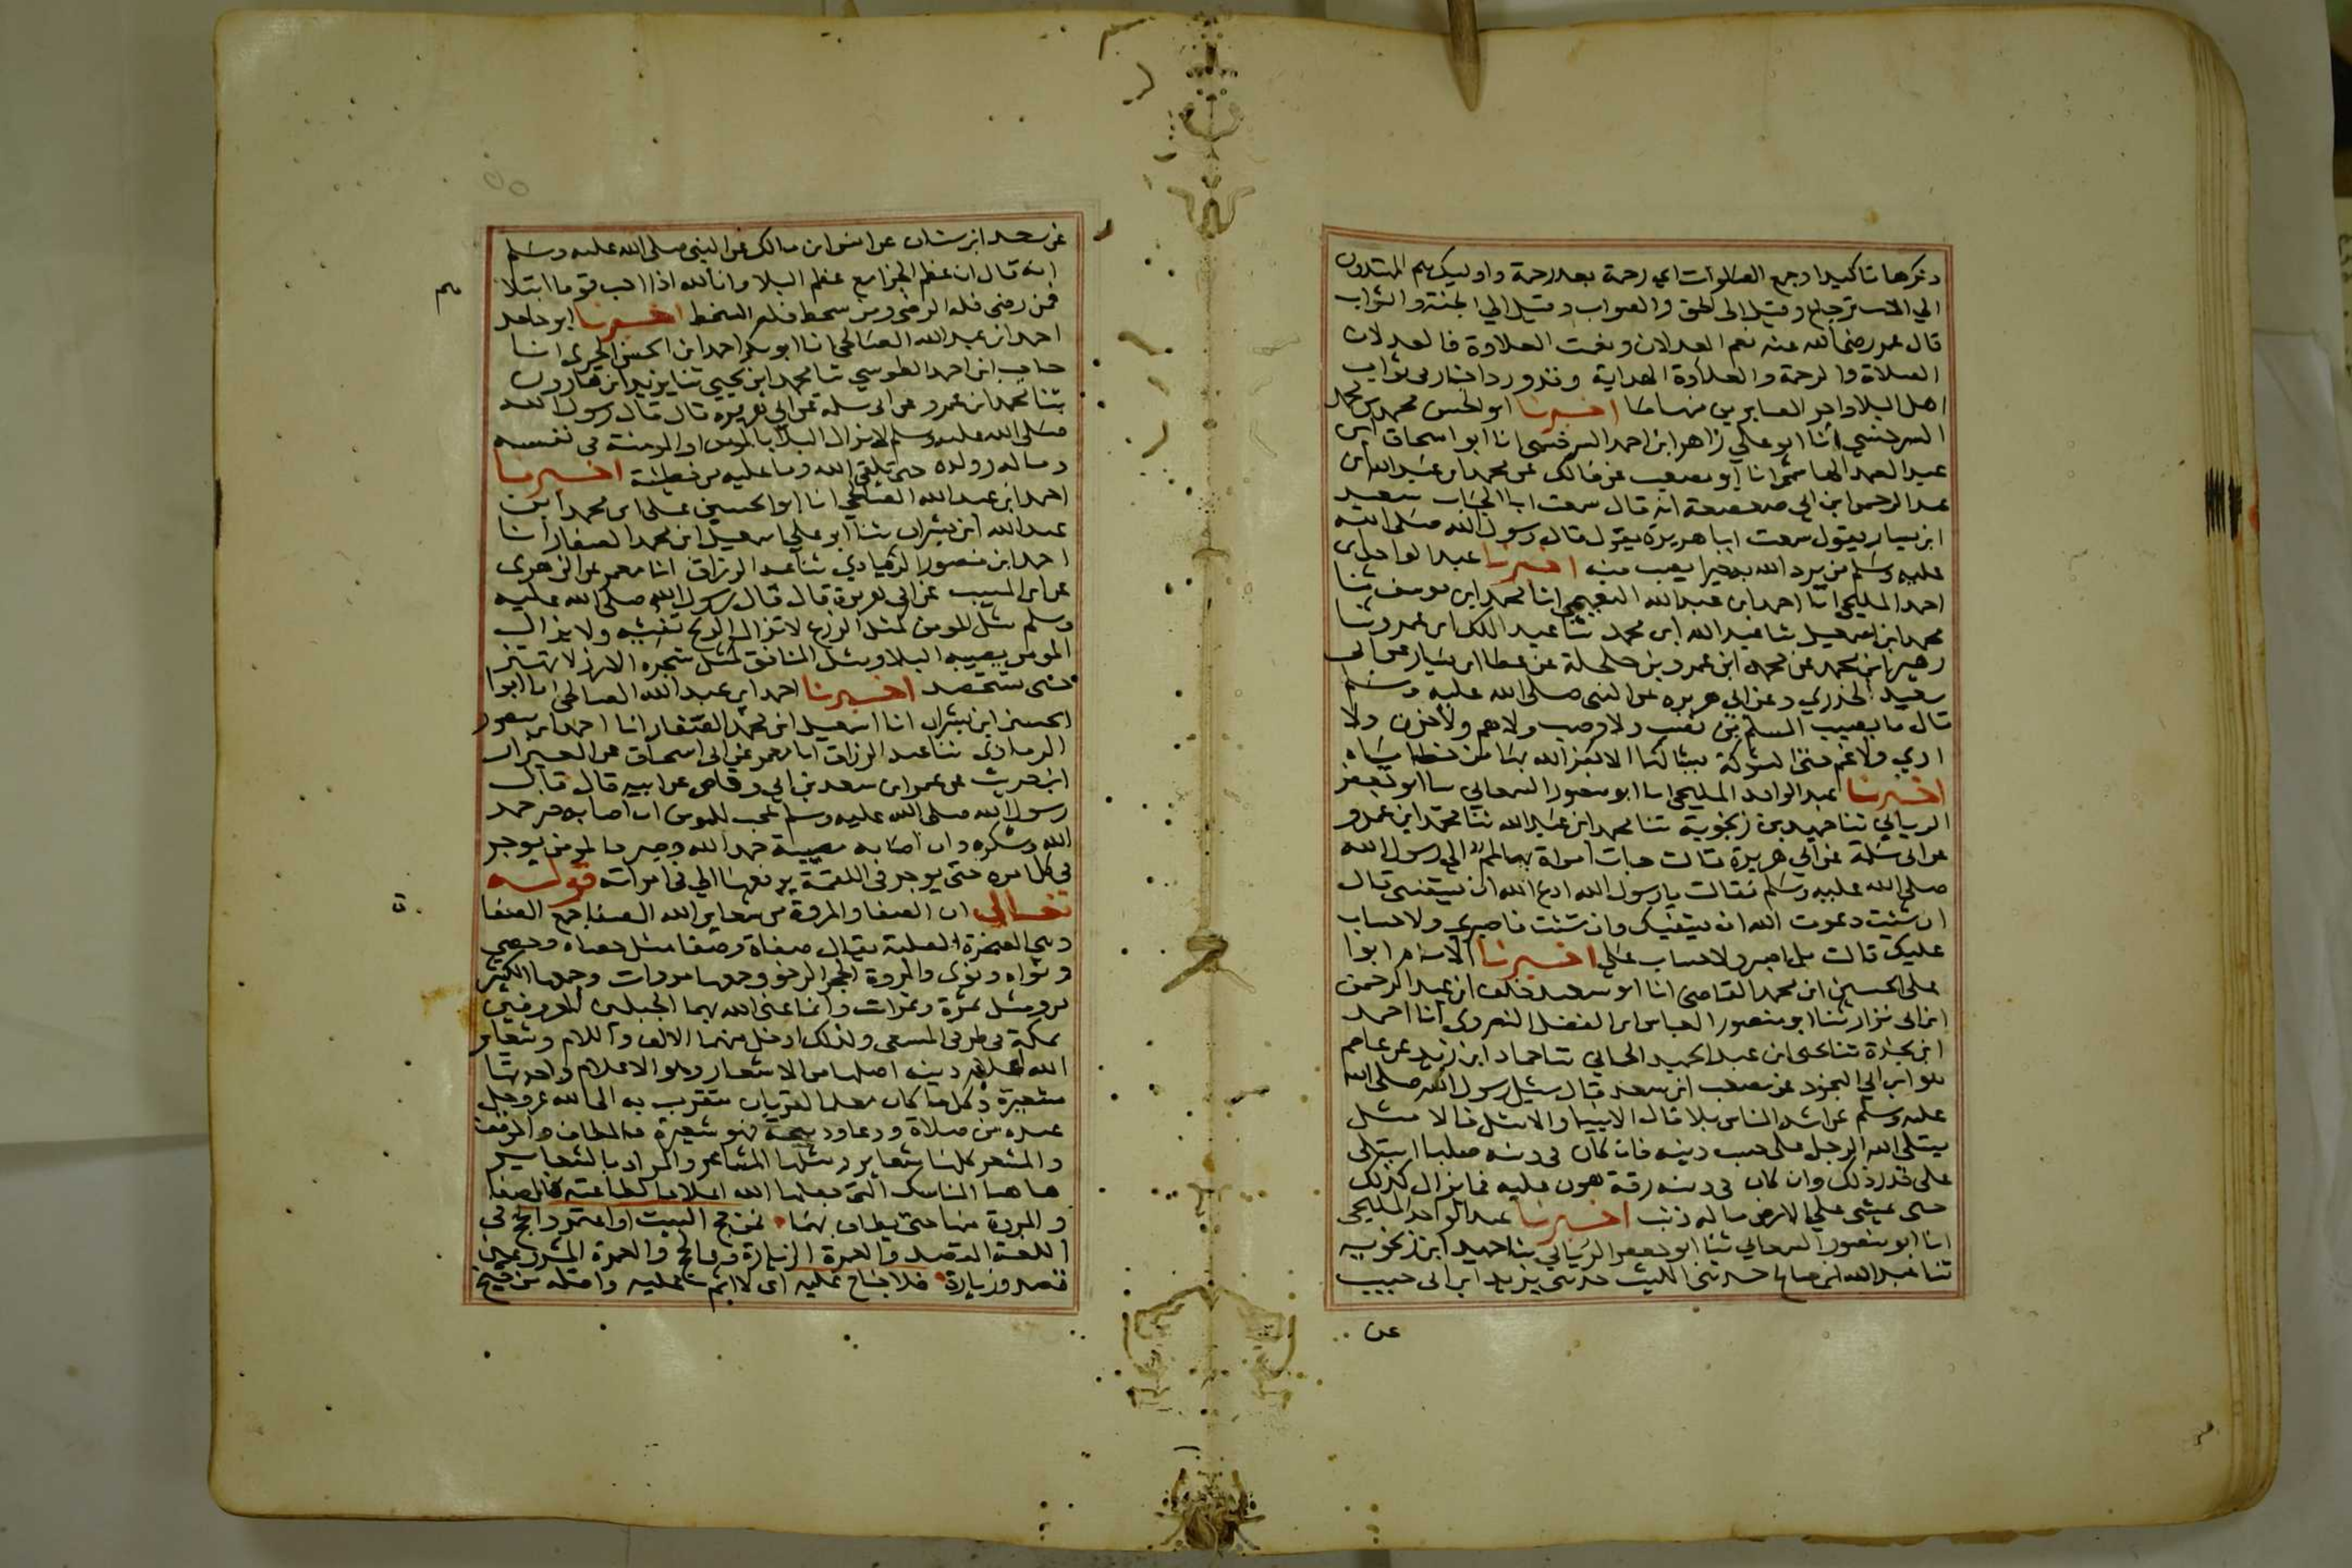 وذكرها تاكيدا وجمع الصلوات اي رحمة بعد رحمة واوليك هم المهتدون
الي الاسترجاع وقيل الى الحق والصواب وقيل الي الجنة والثواب
قال عمر رضي الله عنه نعم العدلان ونعمت العلاوة فالعدلان
الصلاة والرحمة والعلاوة الهداية وقد ورد اخبار في ثواب
اهل البلا واجر الصابرين منها ما اخبرنا ابو الحسن محمد بن محمد
السرخسي انا ابو علي زاهر ابن احمد السرخسي انا ابو اسحاق ابن
عبد الصمد الهاشمي انا ابو مصعب عن مالك عن محمد ابن عبد الله ابن
عبد الرحمن ابن ابي صعصعة انه قال سمعت ابا الحباب سعيد
ابن يسار يقول سمعت ابا هريرة يقول قال رسول الله صلى الله
عليه وسلم من يرد الله به خيرا يصب منه اخبرنا عبد الواحد ابن
احمد المليحي انا احمد ابن عبد الله النعيمي انا محمد ابن يوسف ثنا
محمد ابن اسمعيل ثنا عبد الله ابن محمد ثنا عبد الملك ابن عمرو ثنا
زهير ابن محمد عن محمد ابن عمرو بن حلحلة عن عطا ابن يسار عن ابي
سعيد الخدري وعن ابي هريره عن النبي صلى الله عليه وسلم
قال ما يصيب المسلم من نصب ولا وصب ولا هم ولا حزن ولا
اذي ولا غم حتى الشوكة يشاكها الا كفر الله بها من خطاياه
اخبرنا عبد الواحد المليحي انا ابو منصور السمعاني ثنا ابو جعفر
الرياني ثنا حميد بن زنجوية ثنا محمد ابن عبيد الله ثنا محمد ابن عمرو
عن ابي سلمة عن ابي هريرة قالت جات امراة بها لمم الي رسول الله
صلى الله عليه وسلم فقالت يا رسول الله ادع الله ان يشفني قال
ان شئت دعوت الله ان يشفيك وان شئت فاصبري ولا حساب
عليك قالت بل اصبر ولا حساب علي اخبرنا الامام ابوا
على الحسين ابن محمد القاضي انا ابو سعيد خلف ابن عبد الرحمن
ابن ابي نزار ثنا ابو منصور العباس ابن الفضل النضروي انا احمد
ابن نجدة ثنا يحيى ابن عبد الحميد الحماني ثنا حماد ابن زيد عن عاصم
هو ابن ابي النجود عن مصعب ابن سعد قال سئل رسول الله صلى الله
عليه وسلم عن اشد الناس بلا قال الانبيا والامثل فالامثل
يبتلى الله الرجل على حسب دينه فان كان في دينه صلبا ابتلى
على قدر ذلك وان كان في دينه رقة هون عليه فما يزال كذلك
حتى يمشي علي الارض ما له ذنب اخبرنا عبد الواحد المليحي
انا ابو منصور السمعاني ثنا ابو جعفر الرياني ثنا حميد ابن زنجوية
ثنا عبد الله ابن صالح حدثني الليث حدثني يزيد ابن ابي حبيب
عن
عن سعد ابن سنان عن انس ابن مالك عن النبي صلى الله عليه وسلم
انه قال ان عظم الجزا مع عظم البلا وان الله اذا احب قوما ابتلا
هم
فمن رضي فله الرضي ومن سخط فله السخط اخبرنا ابو حامد
احمد ابن عبد الله الصالحي انا ابو بكر احمد ابن الحسن الحيري انا
حاجب ابن احمد الطوسي ثنا محمد ابن يحيى ثنا يزيد ابن هارون
ثنا محمد ابن عمرو عن ابي سلمة عن ابي هريره قال قال رسول الله
صلى الله عليه وسلم لا يزال البلا بالمومن او المومنة في نفسه
وماله وولده حتى تلقى الله وما عليه من خطيئة اخبرنا
احمد ابن عبد الله الصالحي انا ابو الحسين على ابن محمد ابن
عبد الله ابن بشران ثنا ابو علي اسمعيل ابن محمد الصفار انا
احمد ابن منصور الرمادي ثنا عبد الرزاق انا معمر عن الزهري
عن ابن المسيب عن ابي هريرة قال قال رسول الله صلى الله عليه
وسلم مثل المومن كمثل الزرع لا تزال الريح تفيئه ولا يزال
المومن يصيبه البلا ومثل المنافق كمثل شجرة الارز لا تهتز
حتى تستحصد اخبرنا احمد ابن عبد الله الصالحي انا ابوا
الحسين ابن بشران انا اسمعيل ابن محمد الصفار انا احمد ابن منصور
الرمادي ثنا عبد الرزاق انا معمر عن ابي اسحاق عن العيزار
ابن حريث عن عمر ابن سعد بن ابي وقاص عن ابيه قال قال
رسول الله صلى الله عليه وسلم عجب للمومن ان اصابه خير حمد
الله وشكره وان اصابه مصيبة حمد الله وصبر فالمومن يوجر
في كل امره حتى يوجر في اللقمة يرفعها الي في امراته قوله
تعالي ان الصفا والمروة من شعاير الله الصفا جمع الصفا
ة
وهي الصخرة الصلبة يقال صفاة وصفا مثل حصاه وحصى
ونواه ونوى والمروة الحجر الرخو وجمعها مروات وجمعها الكثير
مرو مثل تمرة وتمرات وانما عنى الله بهما الجبلين المعروفين
بمكة في طرفي المسعى ولذلك ادخل فيهما الالف واللام وشعاير
الله اعلام دينه اصلها من الاشعار وهو الاعلام واحدتها
شعيرة وكل ما كان معلما لقربان يتقرب به الى الله عز وجل
عبده من صلاة ودعا وذبيحة فهو شعيرة فالمطاف والموقف
والمشعر كلها شعاير ومثلها المشاعر والمراد بالشعاير
هاهنا المناسك التي جعلها الله اعلاما لطاعته فالصفا
والمروة منها حتى يطاف بهما فمن حج البيت او اعتمر والحج في
اللغة القصد والعمرة الزيارة وفي الحج والعمرة المشروعين
قصد وزيارة فلا جناح عليه اي لا اثم عليه واصله من جنح